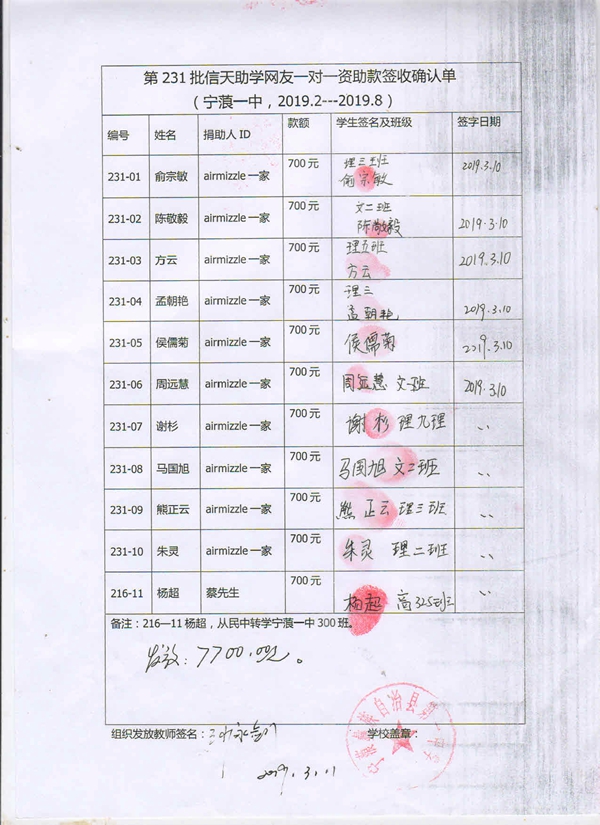 第 231 批信天助学网友一对一资助款签收确认单
（宁蒗一中，2019.2---2019.8）
编号 姓名 捐助人 ID 款额 学生签名及班级 签字日期
231-01 俞宗敏 airmizzle 一家 700 元 理三班 俞宗敏 2019.3.10
231-02 陈敬毅 airmizzle 一家 700 元 文二班 陈敬毅 2019.3.10
231-03 方云 airmizzle 一家 700 元 理五班 方云 2019.3.10
231-04 孟朝艳 airmizzle 一家 700 元 理三 孟朝艳 2019.3.10
231-05 侯儒菊 airmizzle 一家 700 元 侯儒菊 2019.3.10
231-06 周远慧 airmizzle 一家 700 元 周远慧 文一班 2019.3.10
231-07 谢杉 airmizzle 一家 700 元 谢杉 理九理 、、
231-08 马国旭 airmizzle 一家 700 元 马国旭 文二班 、、
231-09 熊正云 airmizzle 一家 700 元 熊正云 理三班 、、
231-10 朱灵 airmizzle 一家 700 元 朱灵 理二班 、、
216-11 杨超 蔡先生 700 元 杨超 高325班 、、
备注：216—11 杨超，从民中转学宁蒗一中 300 班。
发放：7700.00元。
组织发放教师签名： 学校盖章：
宁蒗彝族自治县第一中学
2019.3.11